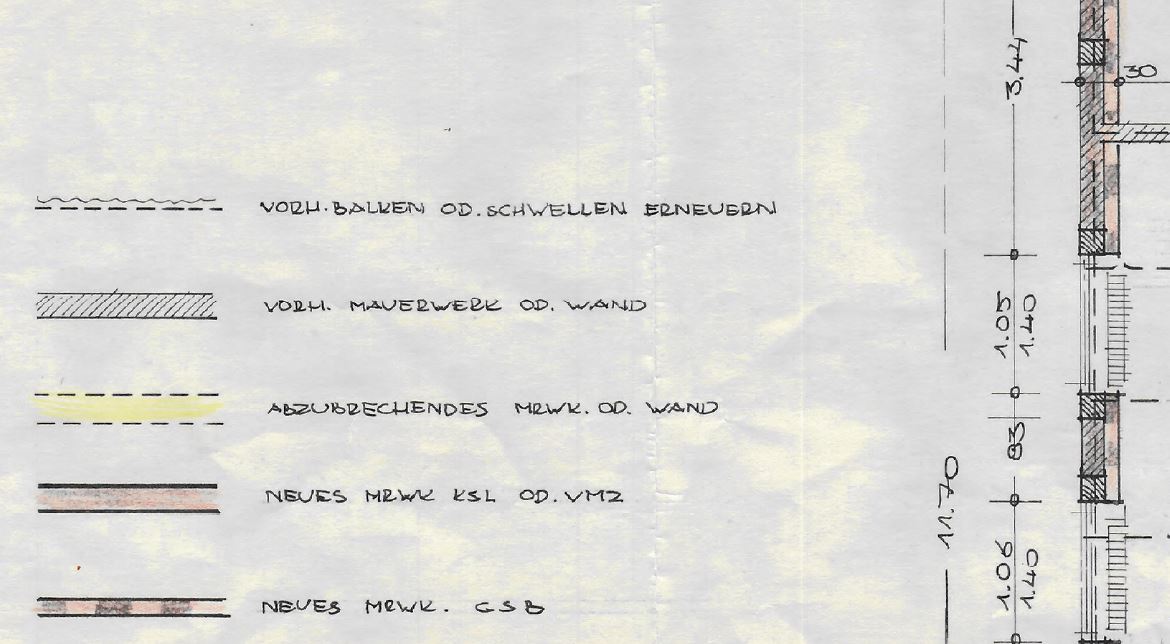 VORH. BALKEN OD. SCHWELLEN ERNEUERN
VORH. MAUERWERK OD. WAND
ABZUBRECHENDES MRWK. OD. WAND
NEUES MRWK KSL OD. VMZ
NEUES MRWK. GSB
11.70
3.44
1.05
1.40
83
1.06
1.40
30